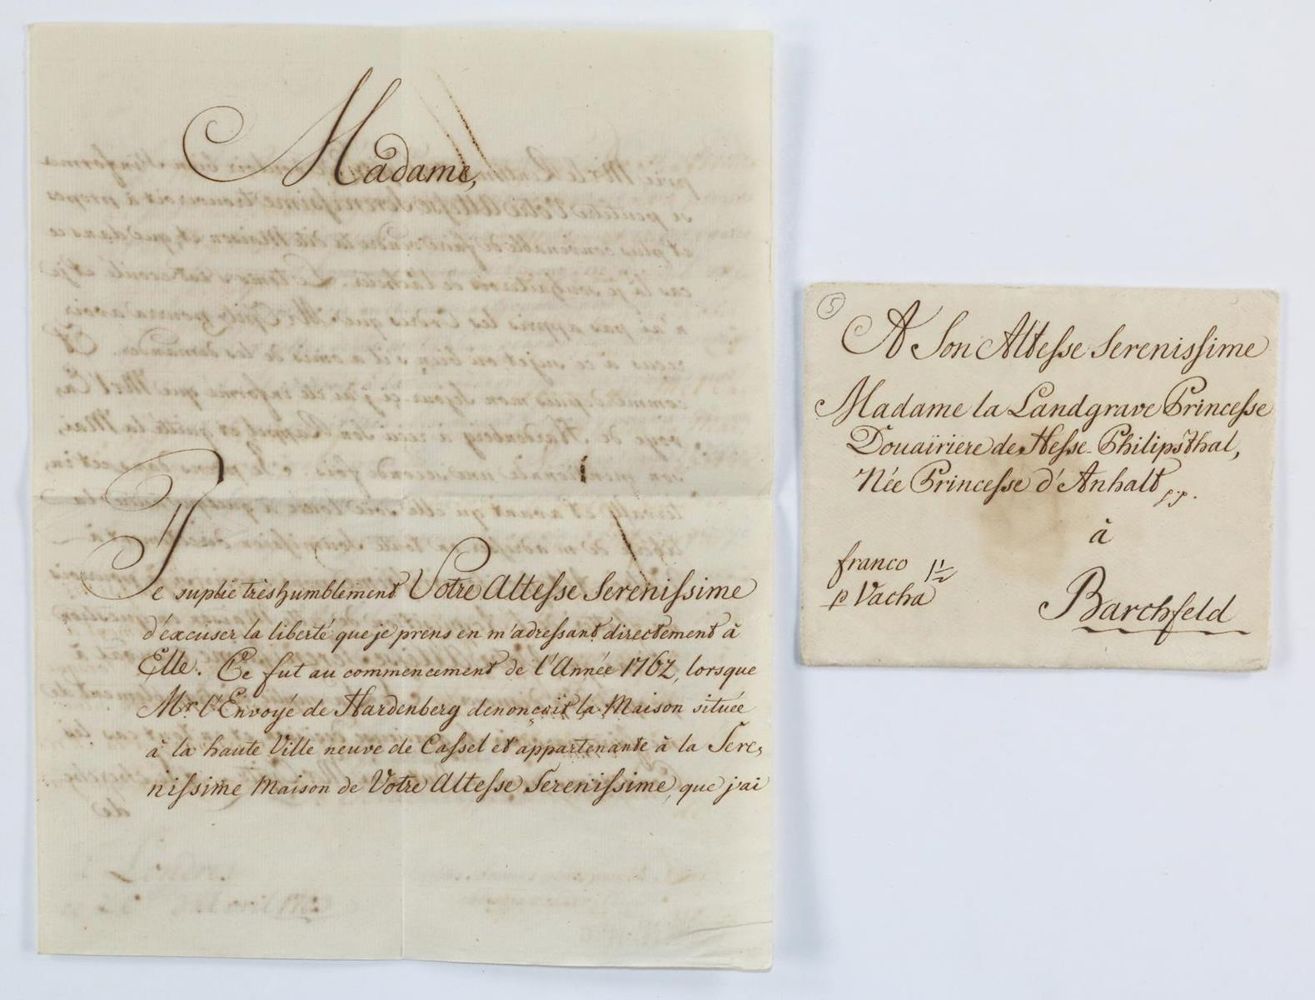 Madame,
Je suplie tres humblement Votre Altesse Serenissime
d'éxcuser la liberté que je prens en m'adressant directement à
Elle. Ce fut au commencement de l'Année 1762, lorsque
Mr. l'Envoyé de Hardenberg denonçait la Maison située
à la haute Ville neuve de Cassel et appartenante à la Sere,
nissime Maison de Votre Altesse Serenissime, que j'ai
5
A Son Altesse Serenissime
Madame la Landgrave Princesse
Douairiere de Hesse-Philipsthal,
Née Princesse d'Anhalt
à
franco
p Vacha
Barchfeld